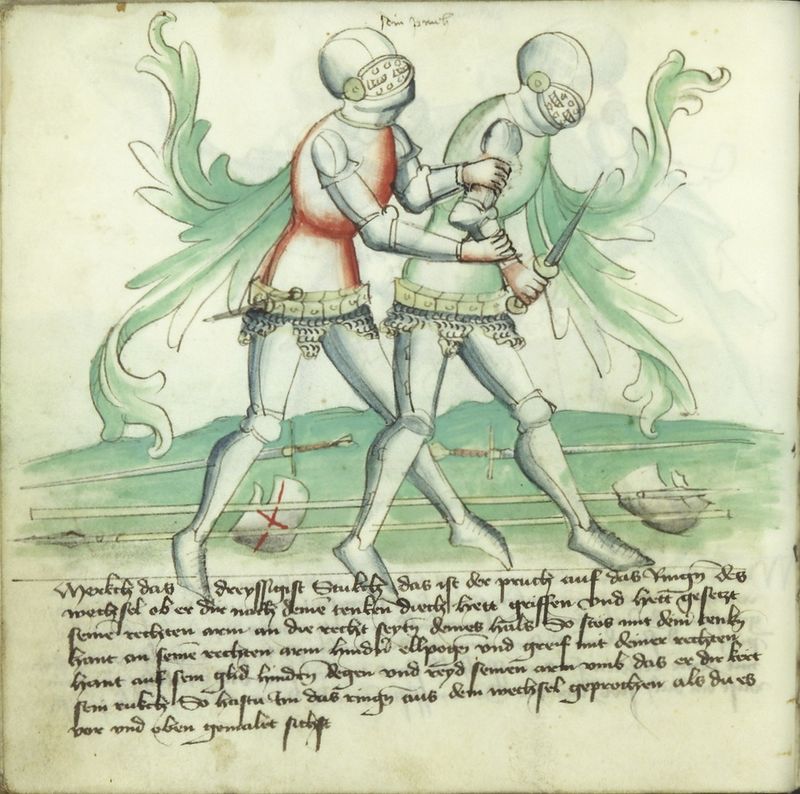 Merckch das dreyssigist Stukch das ist der pruch auf das Ringen des
wechsel ob er dir nach deinē tenkēn diech hett griffen vnd hett gesetzt
seinē rechten arm an die recht seytn deines hals So stos mit deīn tenkñ
hant an seinē rechten arm hindñ ellpogñ vnd greif mit deiner rechten
hant auf sein glid hinden degen vnd reyd seinen arm vmb das er dir kert
sein rukch So hastu Im das ringñ aus dem wechsel geprochen als du es
vor vnd oben gemalet sichst